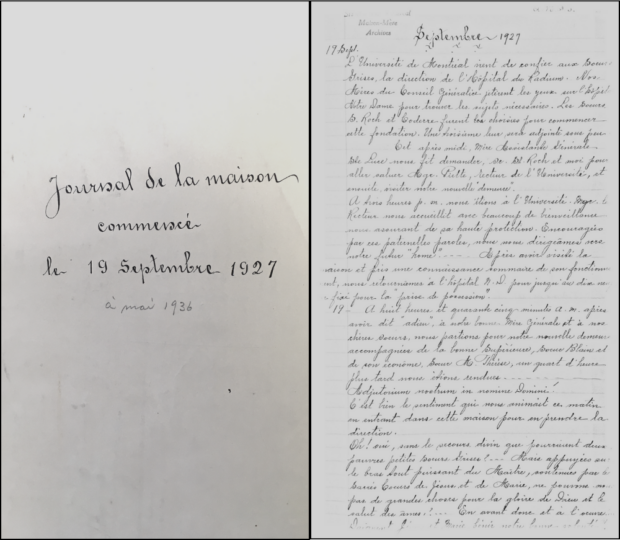 Journal de la maison
commencé
le 19 Septembre 1927
à mai 1936
Maison-Mère
Archives
Septembre 1927
17 Sept.
L'Université de Montréal vient de confier aux Soeurs
Grises, la direction de l'Hôpital du Radium. Nos
Mères du Conseil Général jetèrent les yeux sur l'Hôpital
Notre Dame pour trouver les sujets nécessaires. Les Soeurs
St. Roch et Coderre furent choisies pour commencer
cette fondation. Une troisième leur sera adjointe sous peu.
Cet après midi, Mère Assistante Générale.
nous fait demander, Sr. St. Roch et moi pour
aller saluer Mgr. Recteur de l'Université, et
ensuite visiter notre nouvelle "demeure".
A trois heures p. m. nous étions à l'Université. Mgr. le
Recteur nous accueillit avec beaucoup de bienveillance
nous assurant de sa haute protection. Encouragées
par ces paternelles paroles, nous nous dirigeâmes vers
notre futur "home" Après avoir visité la
maison et pris une connaissance sommaire de son fonctionne-
ment, nous retournâmes à l'hôpital N. D. pour jusqu'au dix neuf
fixé pour la "prise de possession".
19 - A huit heures et quarante cinq minutes a. m. après
avoir dit "adieu", à notre bonne Mère Générale et à nos
chères soeurs, nous partions pour notre nouvelle demeure
accompagnées de la bonne Supérieure, Soeur Piché et
de son économe, Soeur M. Thérèse, un quart d'heure
plus tard nous étions rendues
Adjutorium nostrum in nomine Domini!
C'est bien le sentiment qui nous animait ce matin
en entrant dans cette maison pour en prendre la
direction.
Oh! oui, sans le secours divin que pourraient deux
pauvres petites Soeurs Grises!... Mais appuyées sur
le bras tout puissant du Maître, soutenues par les
Sacrés Coeurs de Jésus et de Marie, ne pouvons nous
pas de grandes choses pour la gloire de Dieu et le
salut des âmes!... En avant donc et à l'oeuvre